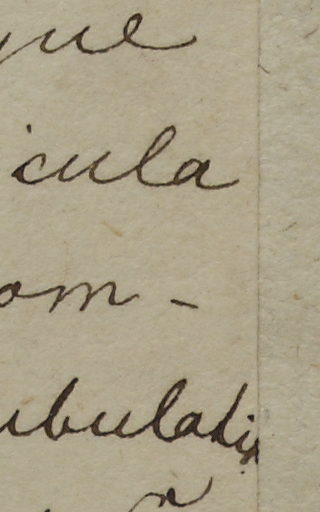 que
icula
om -
ubulatis